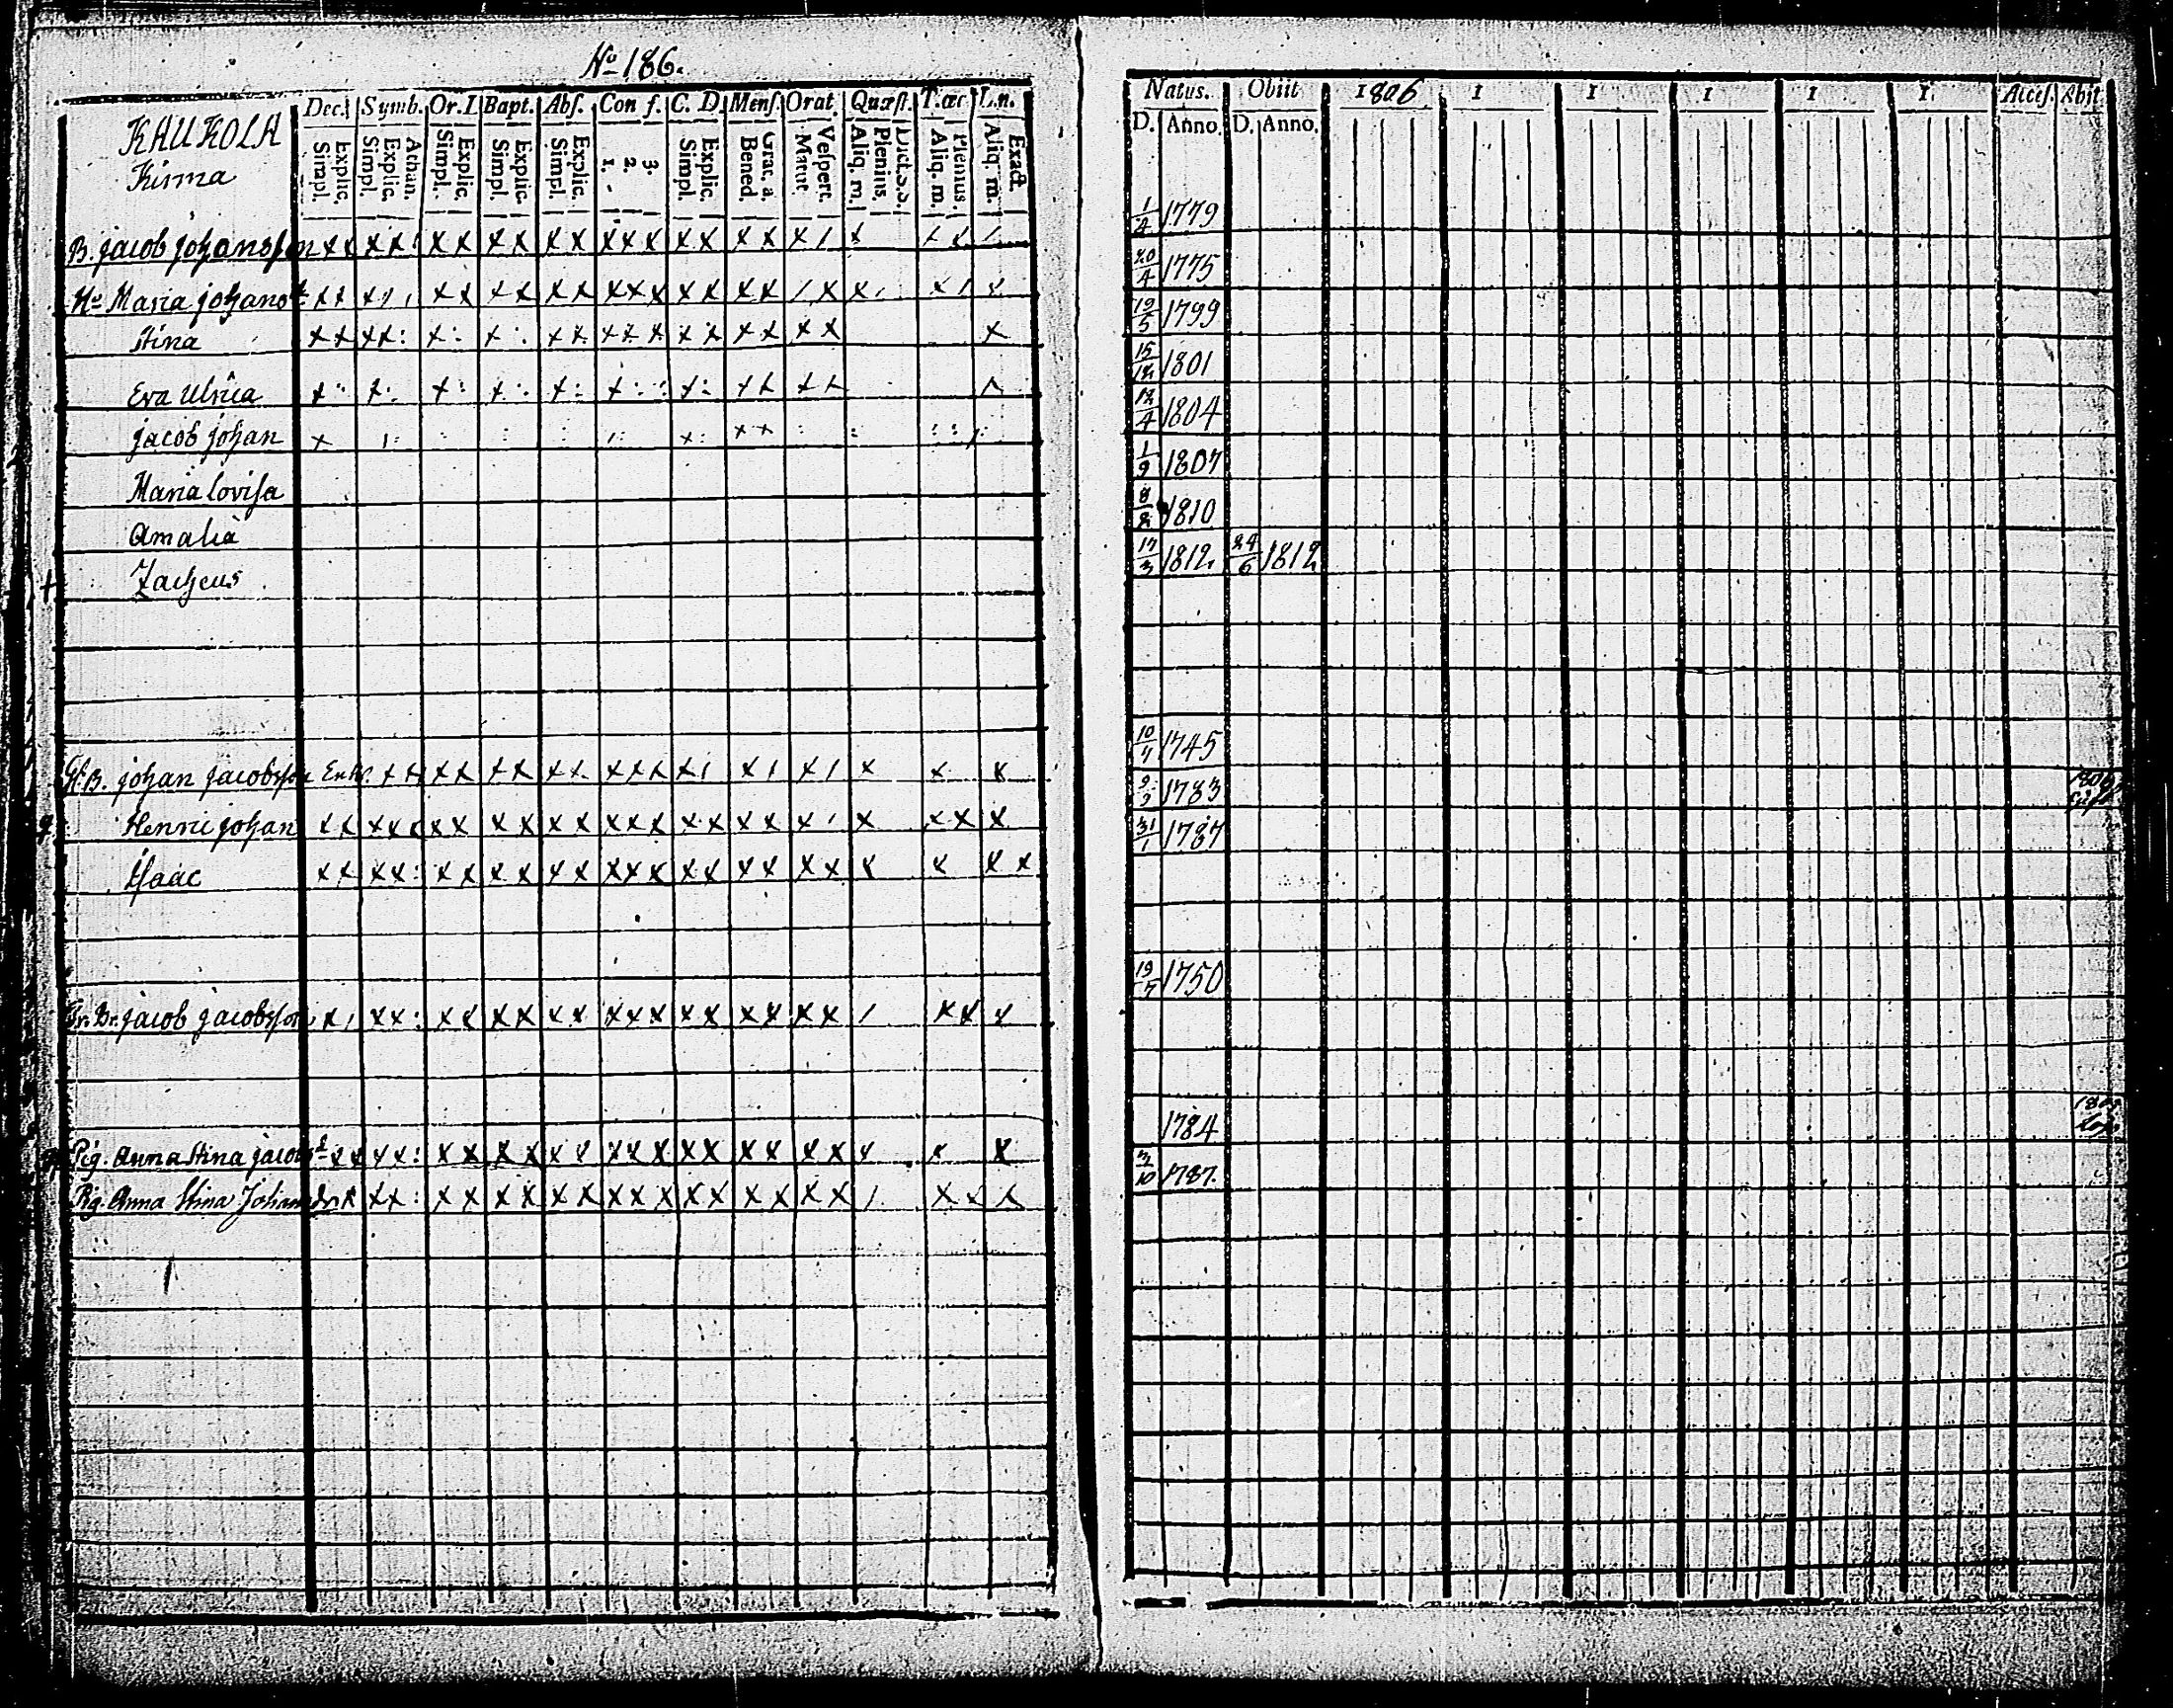 No 186.
KAUKOLA
Kisma
Dec. Symb. Or. D Bapt. Abs. Con f. C. D. Mens Orat. Quæst. T. œc L. n.
Explic. Simpl. Athan. Explic. Simpl. Explic. Simpl. Explic. Simpl. Explic. Simpl. 3. 2. 1. Explic. Simpl. Grac. a. Bened. Vespert. Matut. Dict. S. S. Plenius. Aliq. m. Plenius. Aliq. m. Exact. Aliq. m.
Natus. Obiit 1806 1 1 1 1 1. Acces. Abit
D. Anno. D. Anno.
B. jacob johansson 1/4 1779
Hu Maria johansd 20/4 1775
Stina 19/5 1799
Eva Ulrica 15/12 1801
jacob johan 12/4 1804
Maria lovisa 1/9 1807
Amalia 8/2 1810
+ Zacheus 17/3 1812 24/6 1812
B. johan jacobsson Enk. 10/7 1745
Henric johan 9/9 1783
Isaac 31/1 1787
Br. jacob jacobsson 19/7 1750
Pig. Anna Stina jacobsd 1784
Pig. Anna Stina Johansdr 3/10 1787.